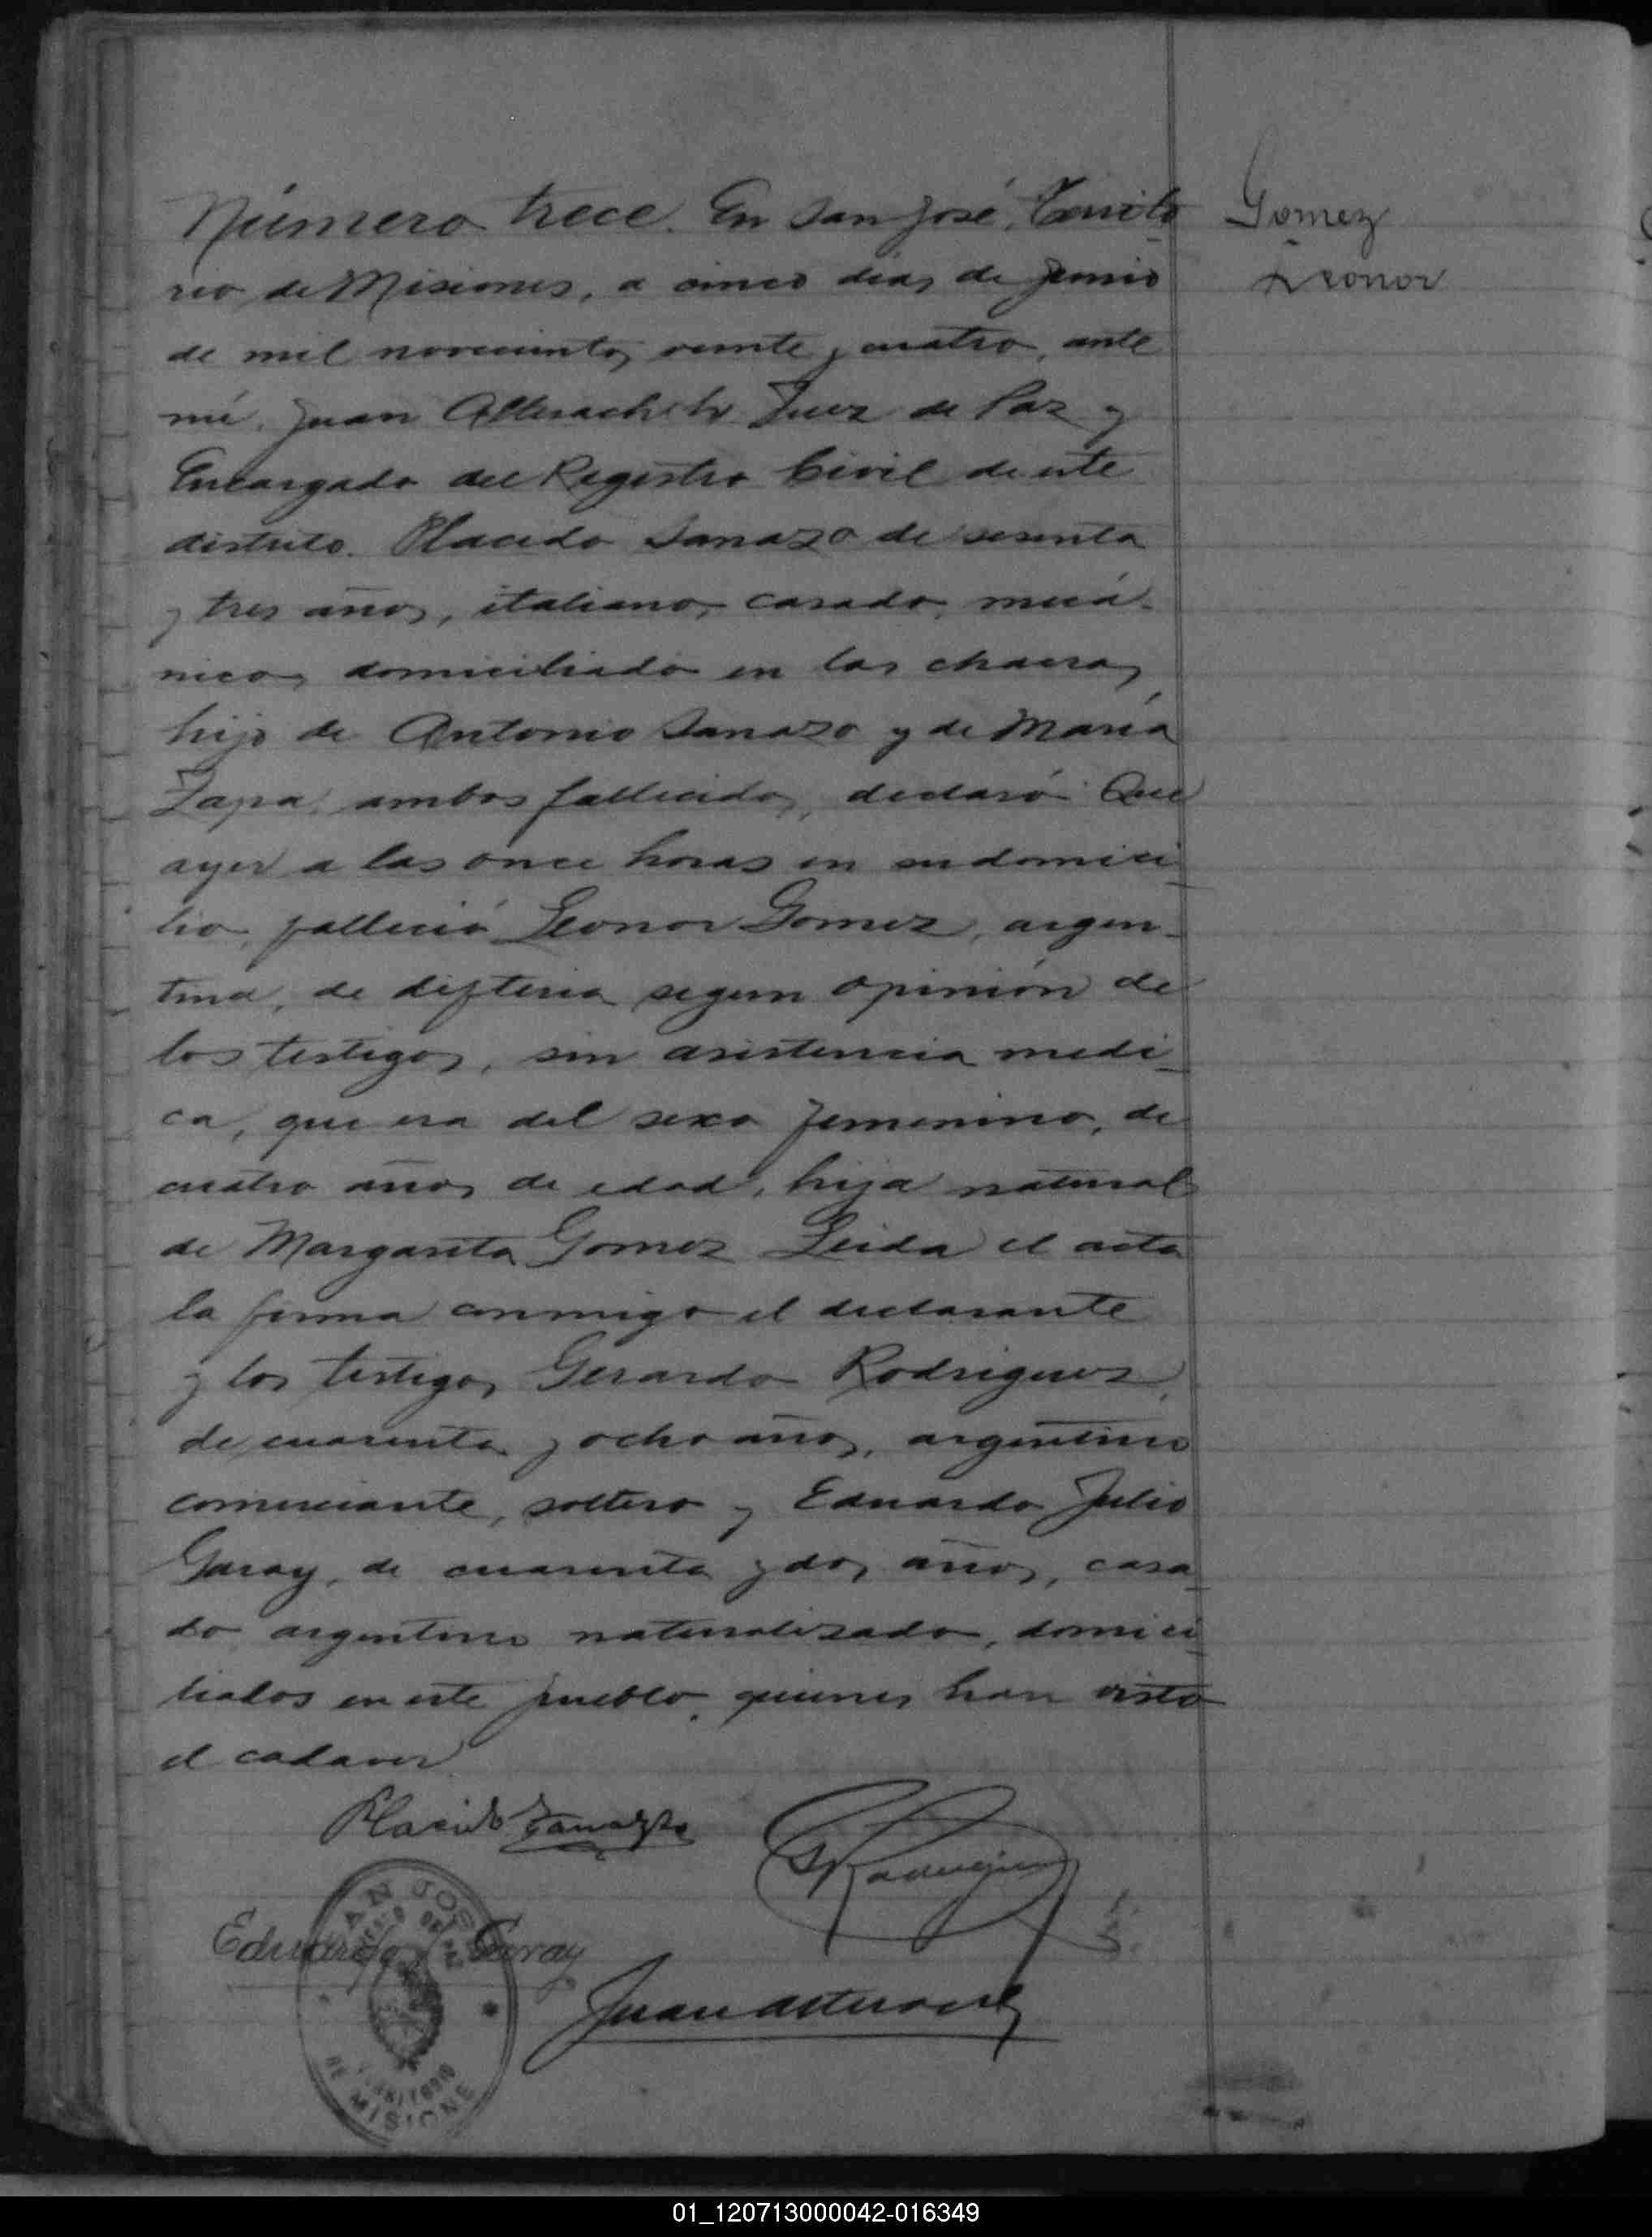 Número trece. En San José, Territo
Gomez
rio de Misiones, a cinco dias de Junio
Leonor
de mil novecientos veinte y cuatro, ante
mi, Juan Juez de Paz y
Encargado del Registro Civil de este
distrito. Placido Sanazo de sesenta
y tres años, italiano, casado, mecá-
nico, domiciliado en las chacras,
hijo de Antonio Sanazo y de María
Zapa, ambos fallecidos, declaró: Que
ayer a las once horas en su domici
lio, falleció Leonor Gomez, argen-
tina, de difteria segun opinión de
los testigos, sin asistencia medi-
ca, que era del sexo femenino, de
cuatro años de edad, hija natural
de Margarita Gomez Leida el acta
la firma conmigo el declarante
y los testigos Gerardo Rodriguez,
de cuarenta y ocho años, argentino
comerciante, soltero y Eduardo Julio
Garay, de cuarenta y dos años, casa
do argentino naturalizado, domici
liados en este pueblo, quienes han visto
el cadaver
Placido
Rodriguez
Eduardo J. Garay
SAN JOSE
Juan
TERRITORIO
DE MISIONES
01_120713000042-016349